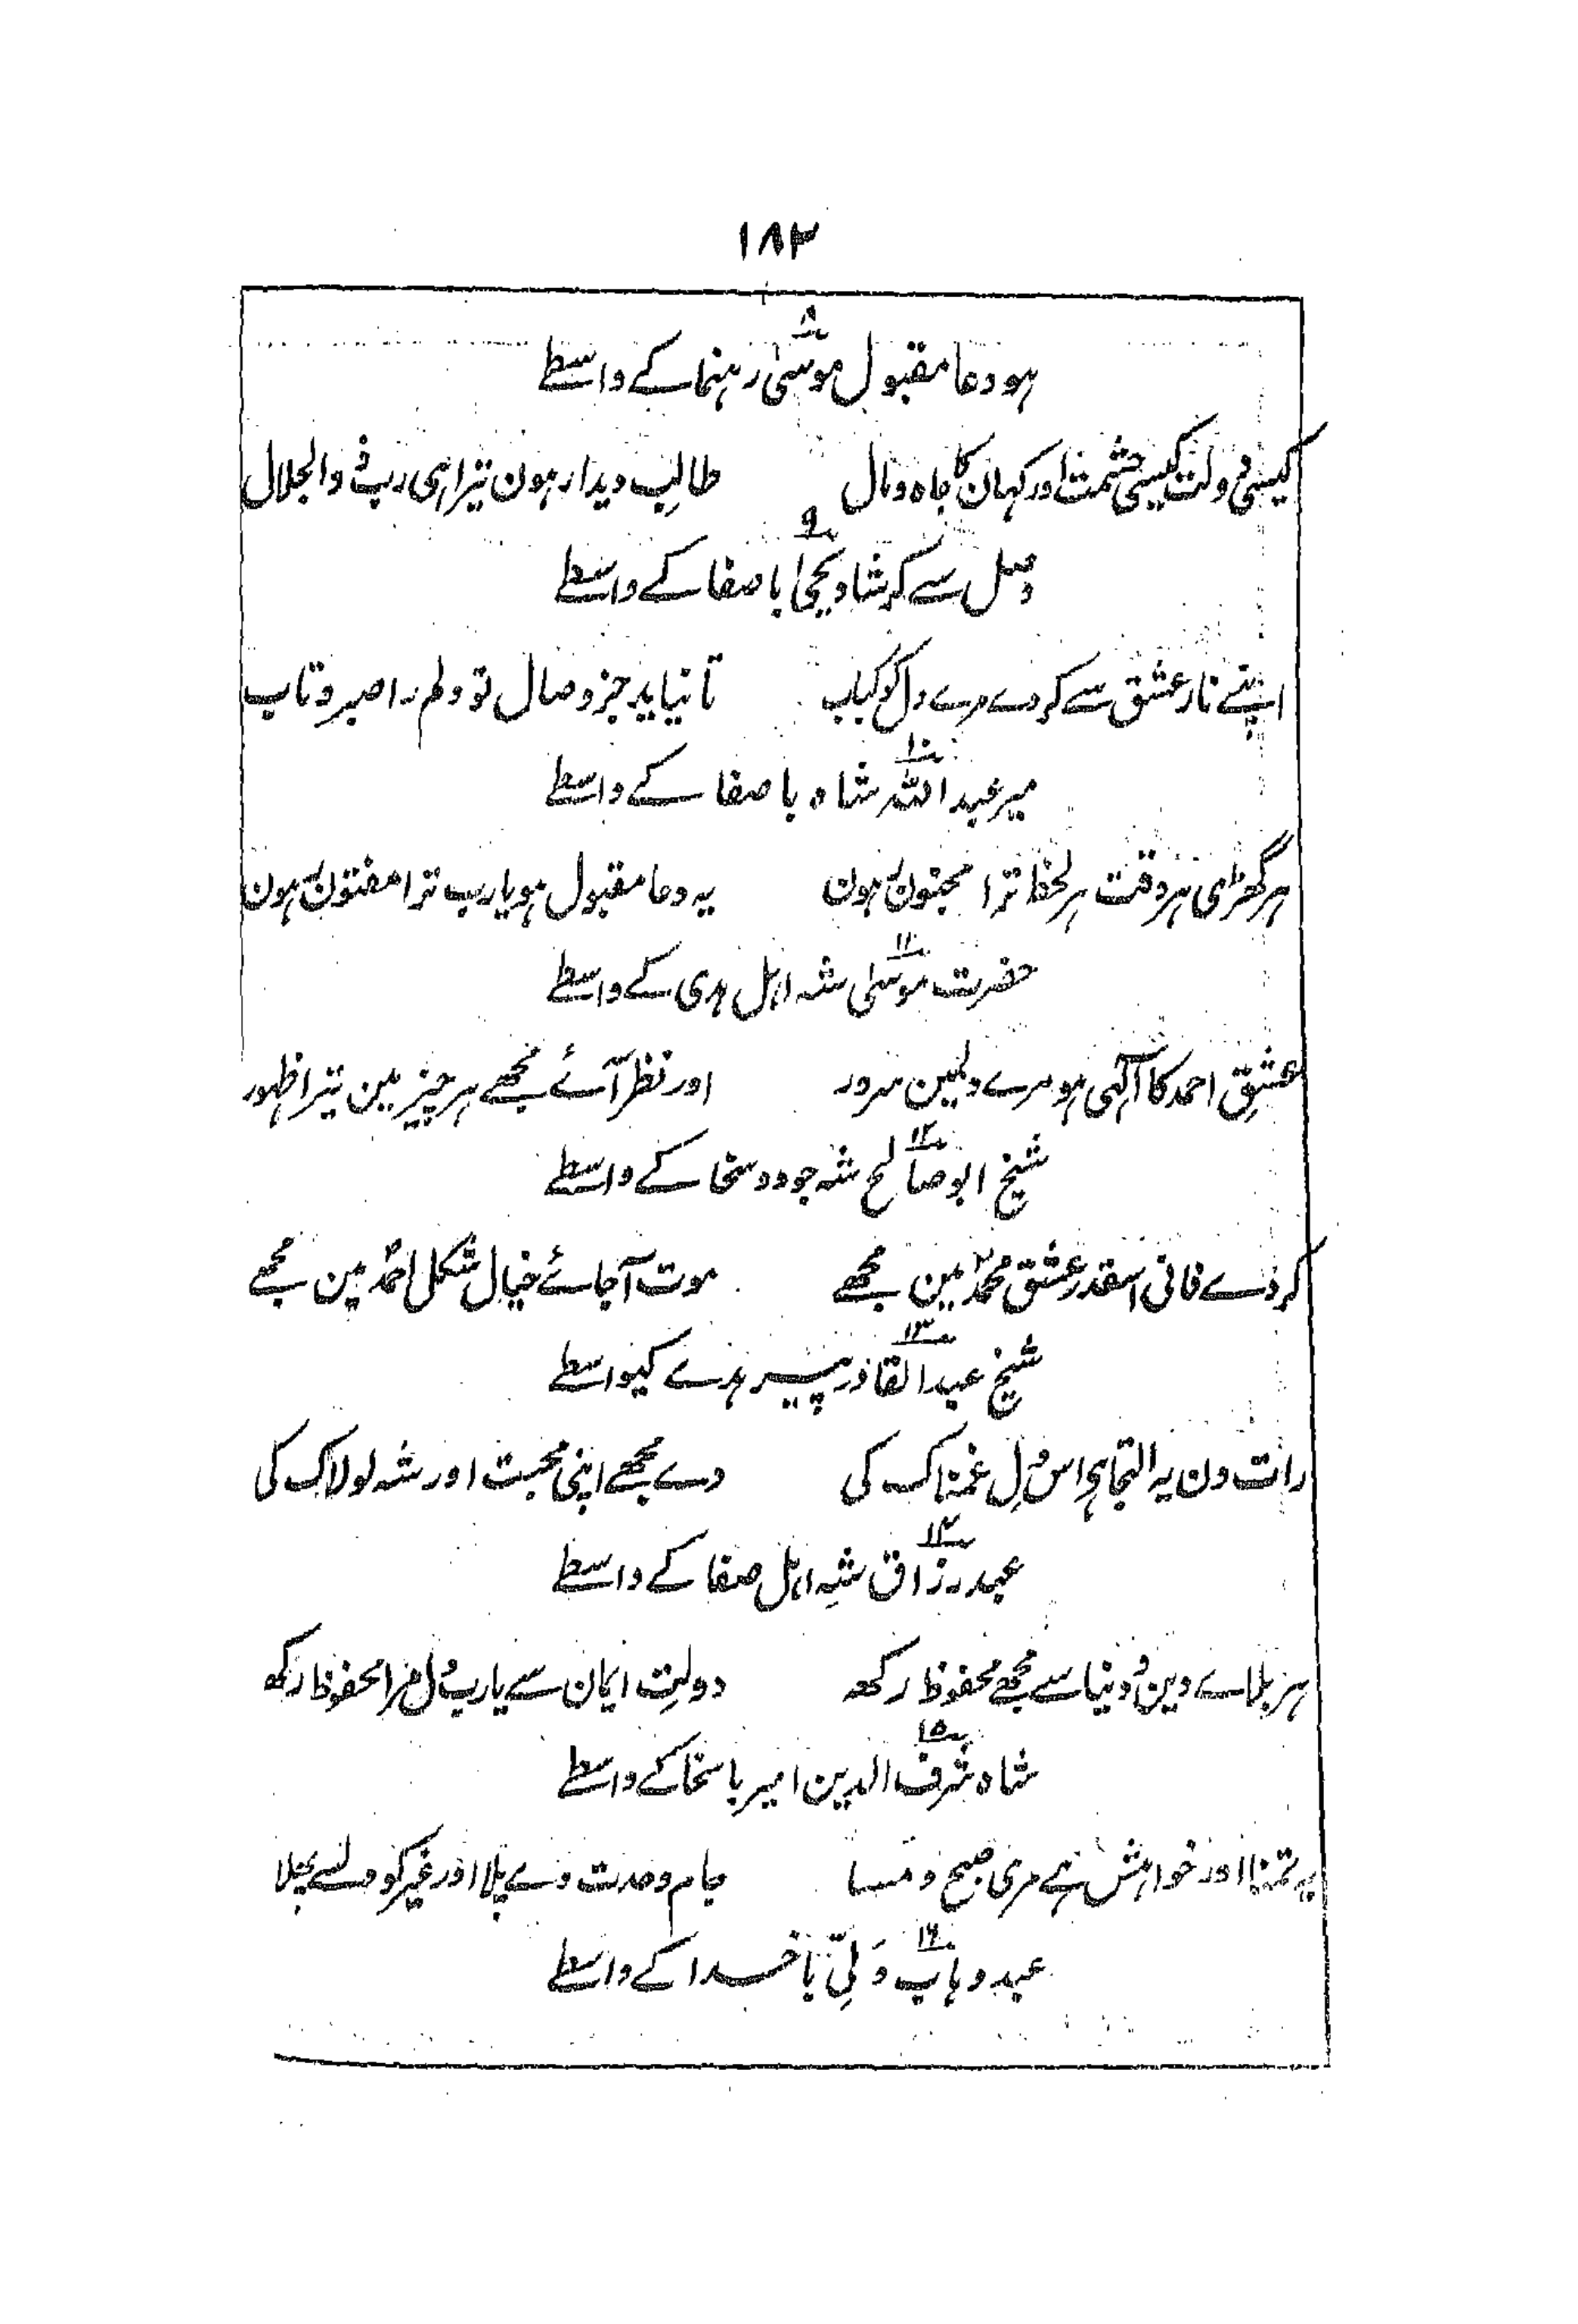 ۱۸۳
۸
ہو دعا مقبول موسٰی رہنما کے واسطے
کیسی دولت کیسی حشمت اور کہان کا جاہ و مال طالبِ دیدار ہون تیرا ہی رب ذوالجلال
۹
وصل سے کر شاد یحییٰ با صفا کے واسطے
اپنے نار عشق سے کر دے مرے دل کو کباب تا نیاید جز وصال تو دلم را صبر و تاب
۱۰
میر عبد اللہ شاہ با صفا کے واسطے
ہر گھڑی ہر وقت ہر لحظا ترا مجنون رہون یہ دعا مقبول ہو یارب ترا مفتون رہون
۱۱
حضرت موسٰی شہ اہل ہدی کے واسطے
عشقِ احمد کا آلٰہی ہو مرے دلمین سرور اور نظر آئے مجھے ہر چیز مین تیرا ظہور
۱۲
شیخ ابو صالح شہ جود و سخا کے واسطے
کر دے فانی اسقدر عشق محمدؐ مین مجھے موت آجائے خیال شکل احمدؐ مین مجھے
۱۳
شیخ عبد القادر پیر ہدے کیواسطے
رات دن یہ التجا ہی اس دلِ غمناک کی دے مجھے اپنی محبت اور شہ لولاک کی
۱۴
عبد رزاق شہِ اہل صفا کے واسطے
ہر بلاے دین و دنیا سے مجھے محفوظ رکھ دولتِ ایمان سے یارب دل مرا محفوظ رکھ
۱۵
شاہ شرف الدین امیر با سخا کے واسطے
یہ تمنا اور خواہش ہے مری صبح و مسا جام وحدت دے پلا اور غیر کو دلسے بھلا
۱۶
عبد وہاب وَلِیّ با خدا کے واسطے